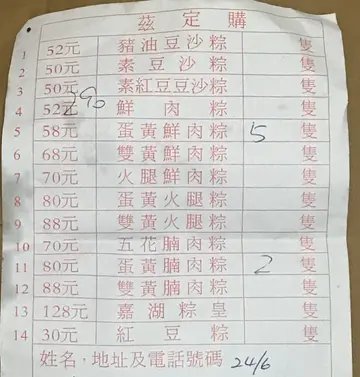 茲定購
1 52元 豬油豆沙粽 隻
2 50元 素豆沙粽 隻
3 50元 素紅豆豆沙粽 隻
4 52元 鮮肉粽 隻
5 58元 蛋黃鮮肉粽 5 隻
6 68元 雙黃鮮肉粽 隻
7 70元 火腿鮮肉粽 隻
8 80元 蛋黃火腿粽 隻
9 88元 雙黃火腿粽 隻
10 70元 五花腩肉粽 隻
11 80元 蛋黃腩肉粽 2 隻
12 88元 雙黃腩肉粽 隻
13 128元 嘉湖粽皇 隻
14 30元 紅豆粽 隻
姓名，地址及電話號碼 24/6